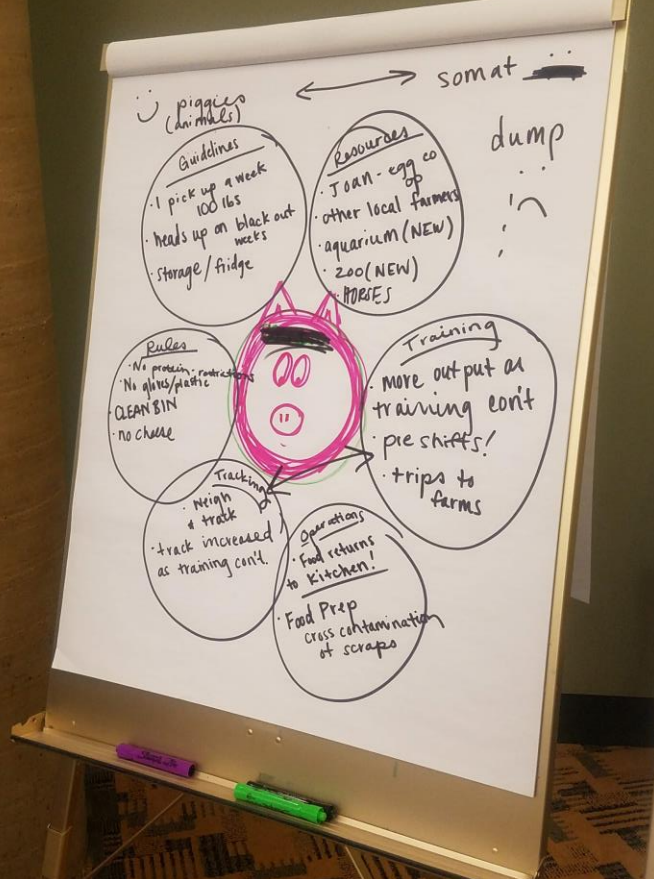 piggies
(animals)
somat
dump
Guidelines
· 1 pick up a week
100 lbs
· heads up on black out
weeks
· storage/fridge
Resources
· Joan - egg co
op
· other local farmers
· aquarium (NEW)
· zoo (NEW)
· HORSES
Rules
· No protein - restrictions
· No gloves/plastic
· CLEAN BIN
· no cheese
Training
· more output as
training con't
· pre shifts!
· trips to
farms
Tracking
· Neigh
& track
· track increased
as training con't.
Operations
· Food returns
to Kitchen!
· Food Prep
cross contamination
of scraps